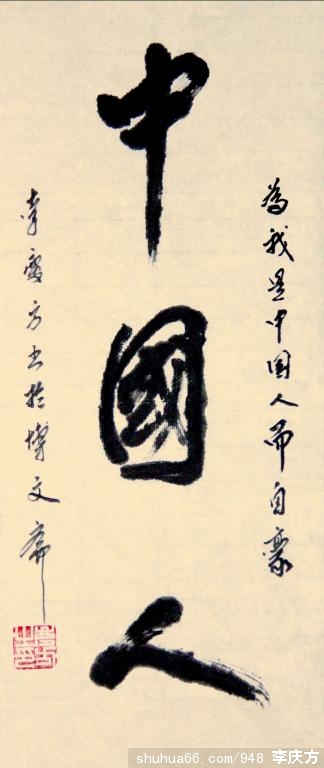 为我是中国人而自豪
中國人
李慶方书於博文斋
shuhua66.com/948 李庆方